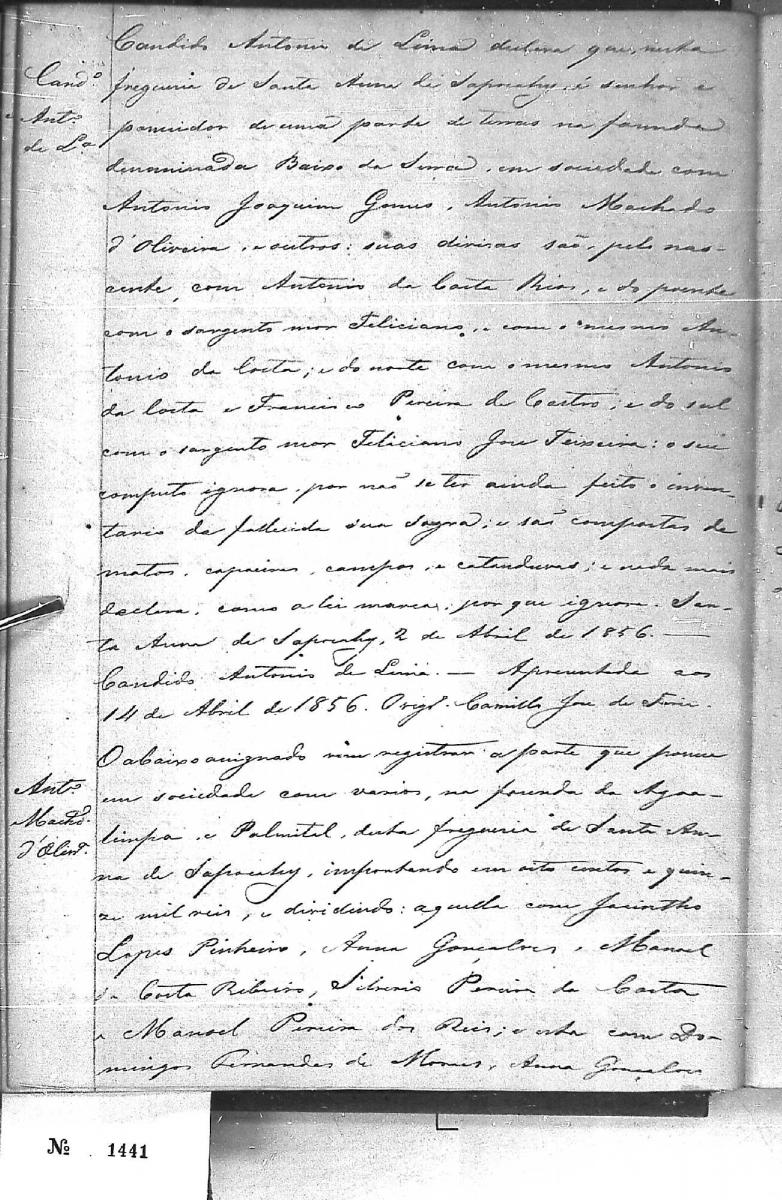 Candido Antonio de Lima declara que, nesta
Cand.º
freguesia de Santa Anna de Sapocahy, é senhor e
Ant.º
possuidor de uma parte de terras na fazenda
de L.ª
denominada Baixo da Serra, em sociedade com
Antonio Joaquim Gomes, Antonio Machado
d'Oliveira, e outros: suas divisas são, pelo nas-
cente, com Antonio da Costa Rios, e do poente
com o sargento mor Feliciano, e com o mesmo An-
tonio da Costa; e do norte com o mesmo Antonio
da Costa e Francisco Pereira de Castro; e do sul
com o sargento mor Feliciano Jose Teixeira: o seu
computo ignora, por não se ter ainda feito o inven-
tario da fallecida sua sogra; e são compostas de
matos, capoeiras, campos, e catanduvas; e nada mais
declara, como a lei marca, por que ignora. San-
ta Anna de Sapocahy, 2 de Abril de 1856. —
Candido Antonio de Lima. — Apresentada aos
14 de Abril de 1856. O vigr.º Camillo Jose de
O abaixo assignado vem registrar a parte que possue
Ant.º
em sociedade com varios, na fazenda da Agoa-
Machd.º
limpa e Palmital, desta freguesia de Santa An-
d'Olivr.ª
na de Sapocahy, importando em oito contos e quin-
ze mil reis, e dividindo: aquella com Jacintho
Lopes Pinheiro, Anna Gonçalves, Manoel
da Costa Ribeiro, Silverio Pereira da Costa
e Manoel Pereira dos Reis; e esta com Do-
mingos Fernandes de Moraes, Anna Gonçalves
Nº 1441